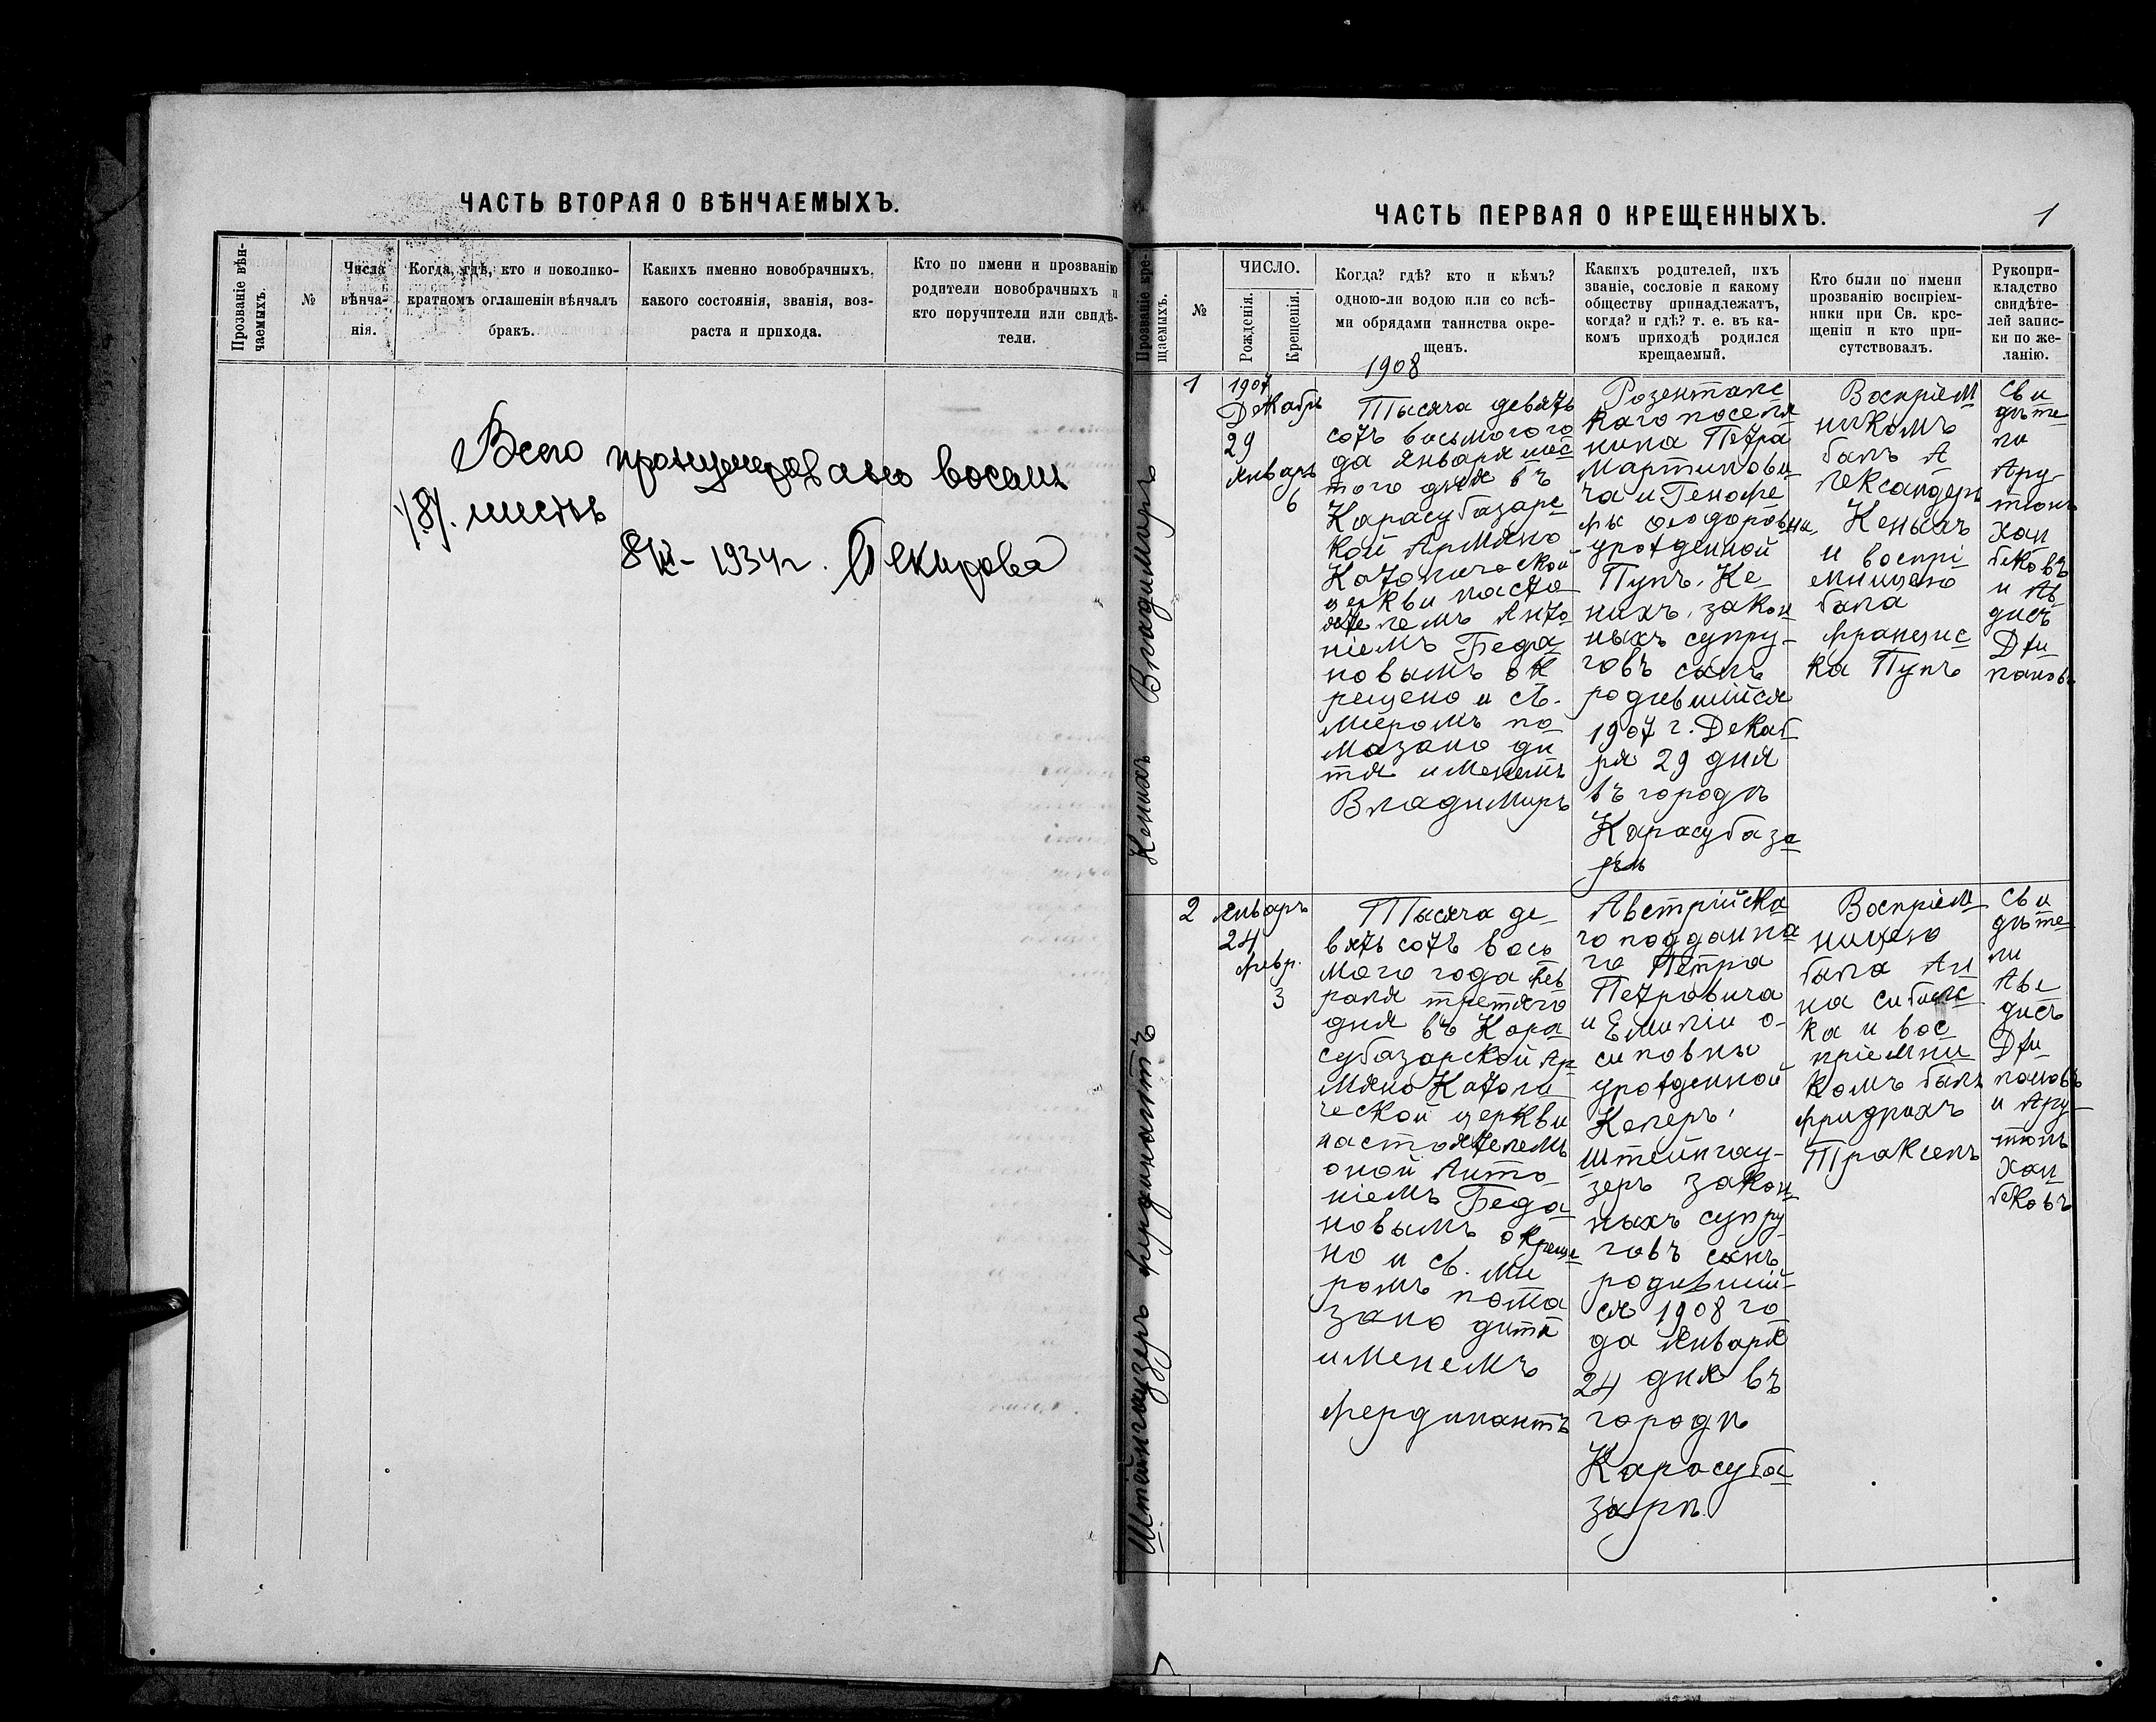 ЧАСТЬ ВТОРАЯ О ВѢНЧАЕМЫХЪ.
Прозваніе вѣн-
чаемыхъ.
№
Числа
вѣнча-
нія.
Когда, гдѣ, кто и поколико-
кратномъ оглашеніи вѣнчалъ
бракъ.
Какихъ именно новобрачныхъ,
какого состоянія, званія, воз-
раста и прихода.
Кто по имени и прозванію
родители новобрачныхъ и
кто поручители или свидѣ-
тели.
Всего пронумеровано восемь
/8/. листов
1934 г.
ЧАСТЬ ПЕРВАЯ О КРЕЩЕННЫХЪ.
1
Прозваніе кре-
щаемыхъ.
№
ЧИСЛО.
Рожденія.
Крещенія.
Когда? гдѣ? кто и кѣмъ?
одною-ли водою или со всѣ-
ми обрядами таинства окре-
щенъ.
Какихъ родителей, ихъ
званіе, сословіе и какому
обществу принадлежатъ,
когда? и гдѣ? т. е. въ ка-
комъ приходѣ родился
крещаемый.
Кто были по имени
прозванію воспріем-
ники при Св. кре-
щеніи и кто при-
сутствовалъ.
Рукопри-
кладство
свидѣте-
лей запис-
ки по же-
ланію.
1908
Владимиръ
1
1907
Декабрь
29
Январь
6
Тысяча девять
сотъ восьмого го
да января шес
того дня въ
Карасубазарс
кой Армяно
Католической
церкви насто
ятелемъ Анто
ніемъ Беда
новымъ ок
рещено и св.
миромъ по
мазано ди
тя именемъ
Владимиръ
Розентальс
каго поселя
нина Петра
Мартинови
ча и Геновѣ
фы Ѳеодоровны,
урожденной
законныхъ супру-
говъ сынъ
родившійся
1907 г. Декаб
ря 29 дня
въ городѣ
Карасубаза
рѣ
Воспріем
никомъ
былъ А
лександеръ
и воспрі
емницею
была
Францис
ка
Сви
дѣте
ли
Ару
тюнъ
Хан
бековъ
Штейнгаузеръ Фердинантъ
2
Январь
24
Февр.
3
Тысяча де
вять сотъ вось
мого года Фев
раля третяго
дня въ Кара
субазарской Ар
мяно Католи
ческой церкви
настоятелемъ
оной Анто
ніемъ Беда
новымъ окреще
но и св. ми
ромъ пома
зано дитя
именемъ
Фердинантъ
Австрійска
го подданна
го Петра
Петровича
и Емиліи О-
сиповны
урожденной
Келеръ,
Штейнгау-
зеръ закон
ныхъ супру
говъ сынъ
родившій-
ся 1908 го
да Января
24 дня въ
городѣ
Карасуба
зарѣ
Воспріем
ницею
была Ан
на
и вос
пріемни
комъ былъ
Фридрихъ
Траксель
Сви
дѣте
ли
Аве
дисъ
и Ару
тюнъ
Хан
бековъ